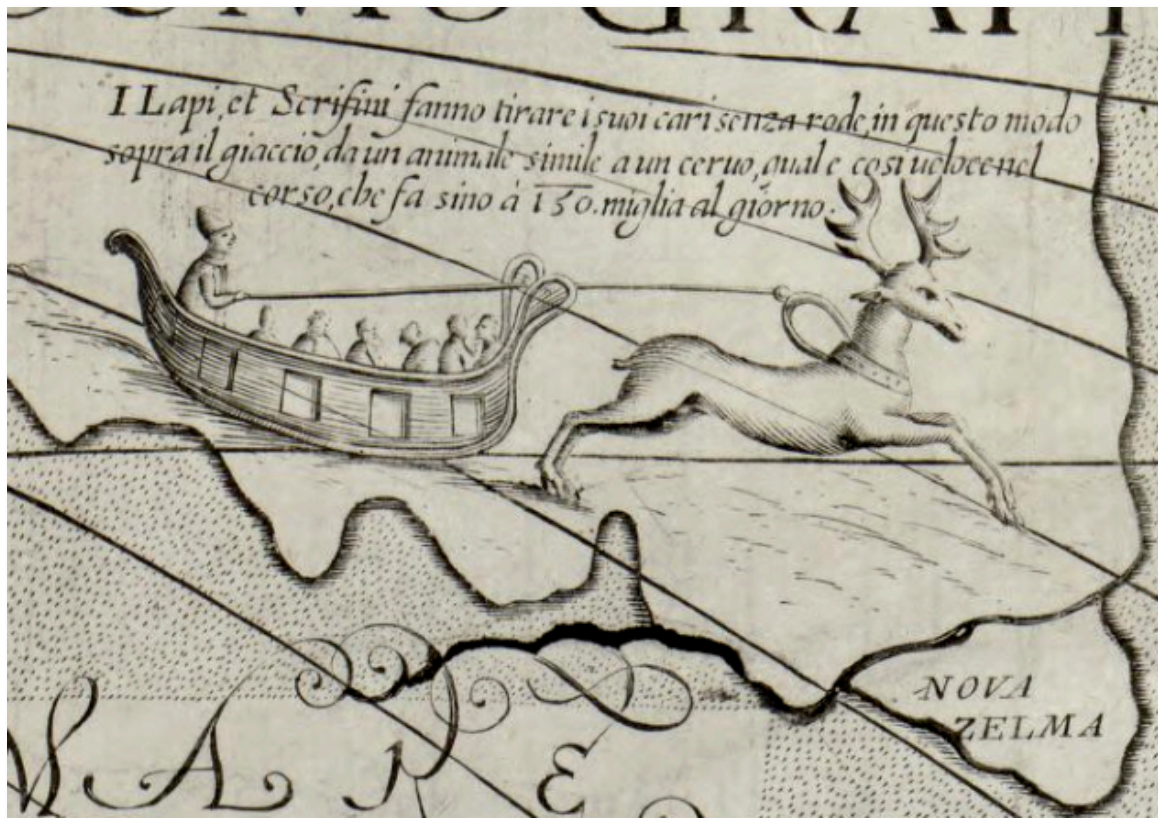 I Lapi, et Scrifini fanno tirare i suoi cari senza rode, in questo modo
sopra il giaccio, da un animale simile a un ceruo, qual e cosi ueloce nel
corso, che fa sino à 150. miglia al giorno.
NOVA
ZELMA
MARE